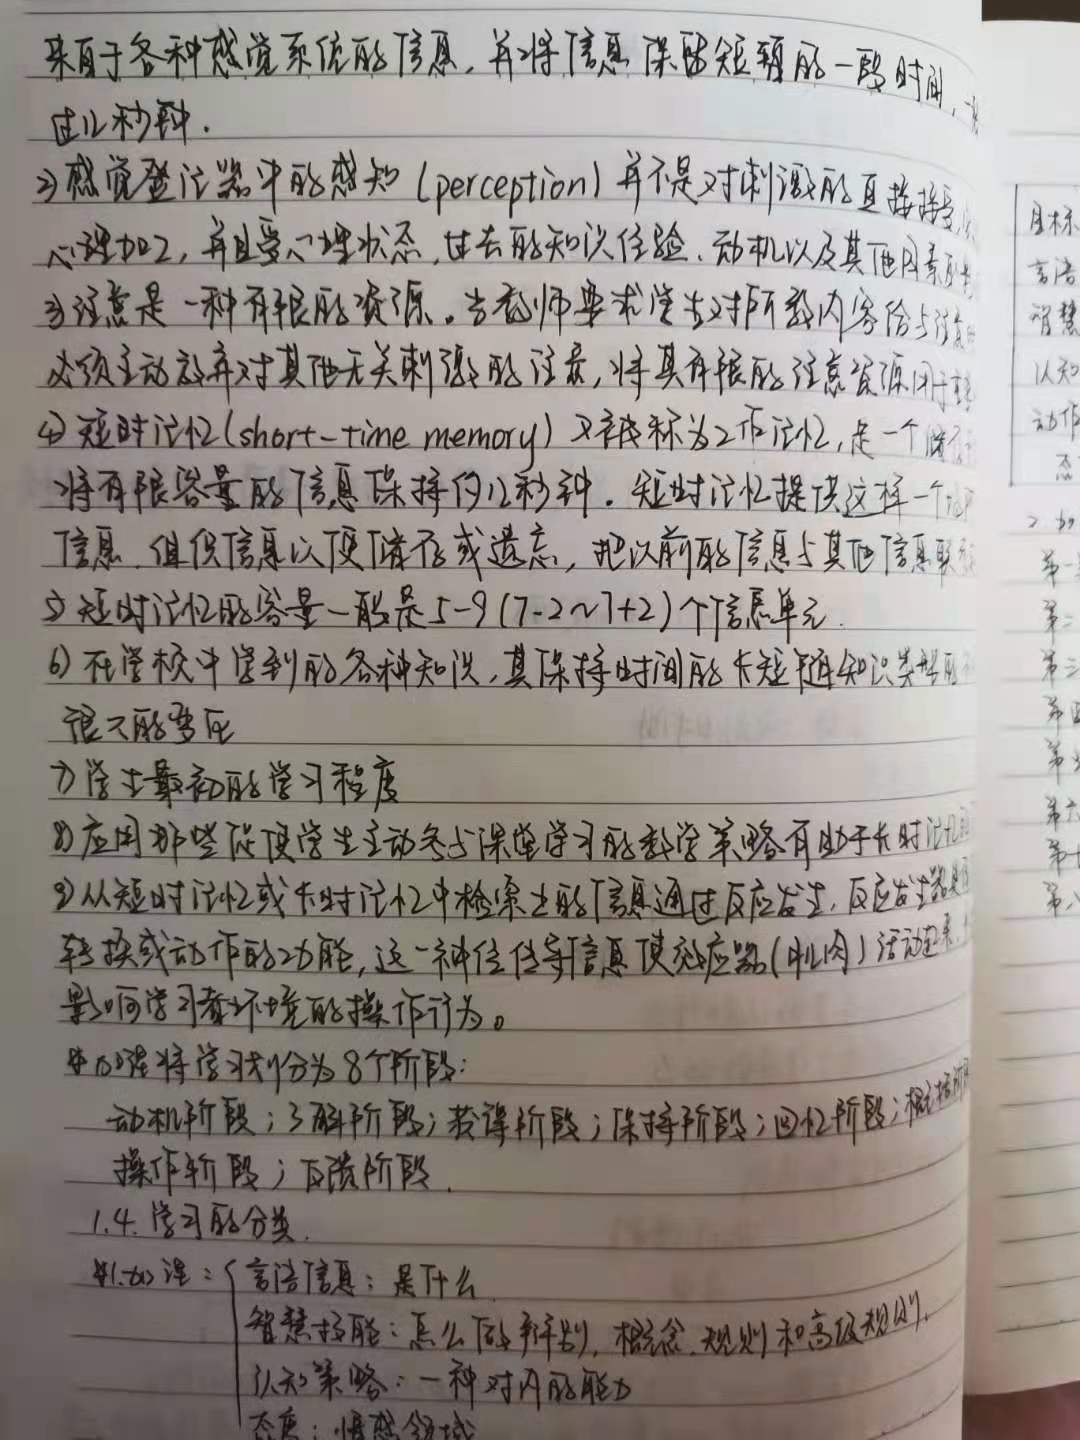 来自于各种感觉系统的信息，并将信息保留短暂的一段时间，一
过几秒钟．
2)感觉登记器中的感知(perception)并不是对刺激的直接接受，
心理加工，并且受心理状态，过去的知识经验、动机以及其他因素的
3)注意是一种有限的资源。当教师要求学生对所教内容给与注意
必须主动放弃对其他无关刺激的注意，将其有限的注意资源用于
4)短时记忆(short-time memory)又被称为工作记忆，是一个储存
将有限容量的信息保持约几秒钟．短时记忆提供这样一个
信息．组织信息以便储存或遗忘，把以前的信息与其他信息联系
5)短时记忆的容量一般是5-9(7-2～7+2)个信息单元．
6)在学校中学到的各种知识，其保持时间的长短随知识类型的
很大的变化
7)学生最初的学习程度
8)应用那些促使学生主动参与课堂学习的教学策略有助于长时记忆
9)从短时记忆或长时记忆中检索出的信息通过反应发生，反应发生器具
转换或动作的功能，这一神经传导信息使效应器(肌肉)活动起来，
影响学习者环境的操作行为。
加涅将学习划分为8个阶段：
动机阶段；了解阶段；获得阶段；保持阶段；回忆阶段；概括阶段
操作阶段；反馈阶段．
1.4.学习的分类．
加涅：{言语信息：是什么．
智慧技能：怎么做 辨别，概念．规则和高级规则．
认知策略：一种对内的能力
态度：情感领域
目标
言语
智慧
认知
动作
态
2.加
第一
第二
第三
第四
第五
第六
第七
第八